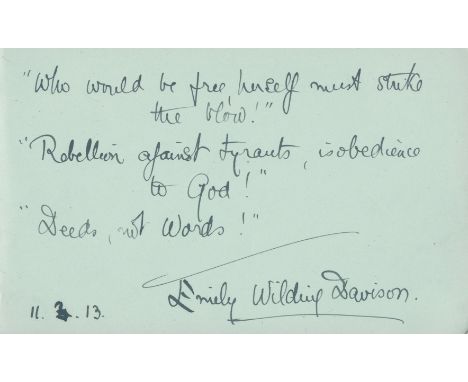 "Who would be free, herself must strike
the blow!"
"Rebellion against tyrants, is obedience
to God!"
"Deeds, not Words!"
Emily Wilding Davison.
11. 3. 13.